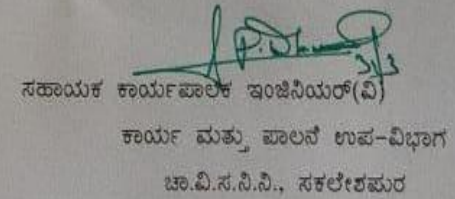 3/3
ಸಹಾಯಕ ಕಾರ್ಯಪಾಲಕ ಇಂಜಿನಿಯರ್(ವಿ)
ಕಾರ್ಯ ಮತ್ತು ಪಾಲನೆ ಉಪ-ವಿಭಾಗ
ಚಾ.ವಿ.ಸ.ನಿ.ನಿ., ಸಕಲೇಶಪುರ